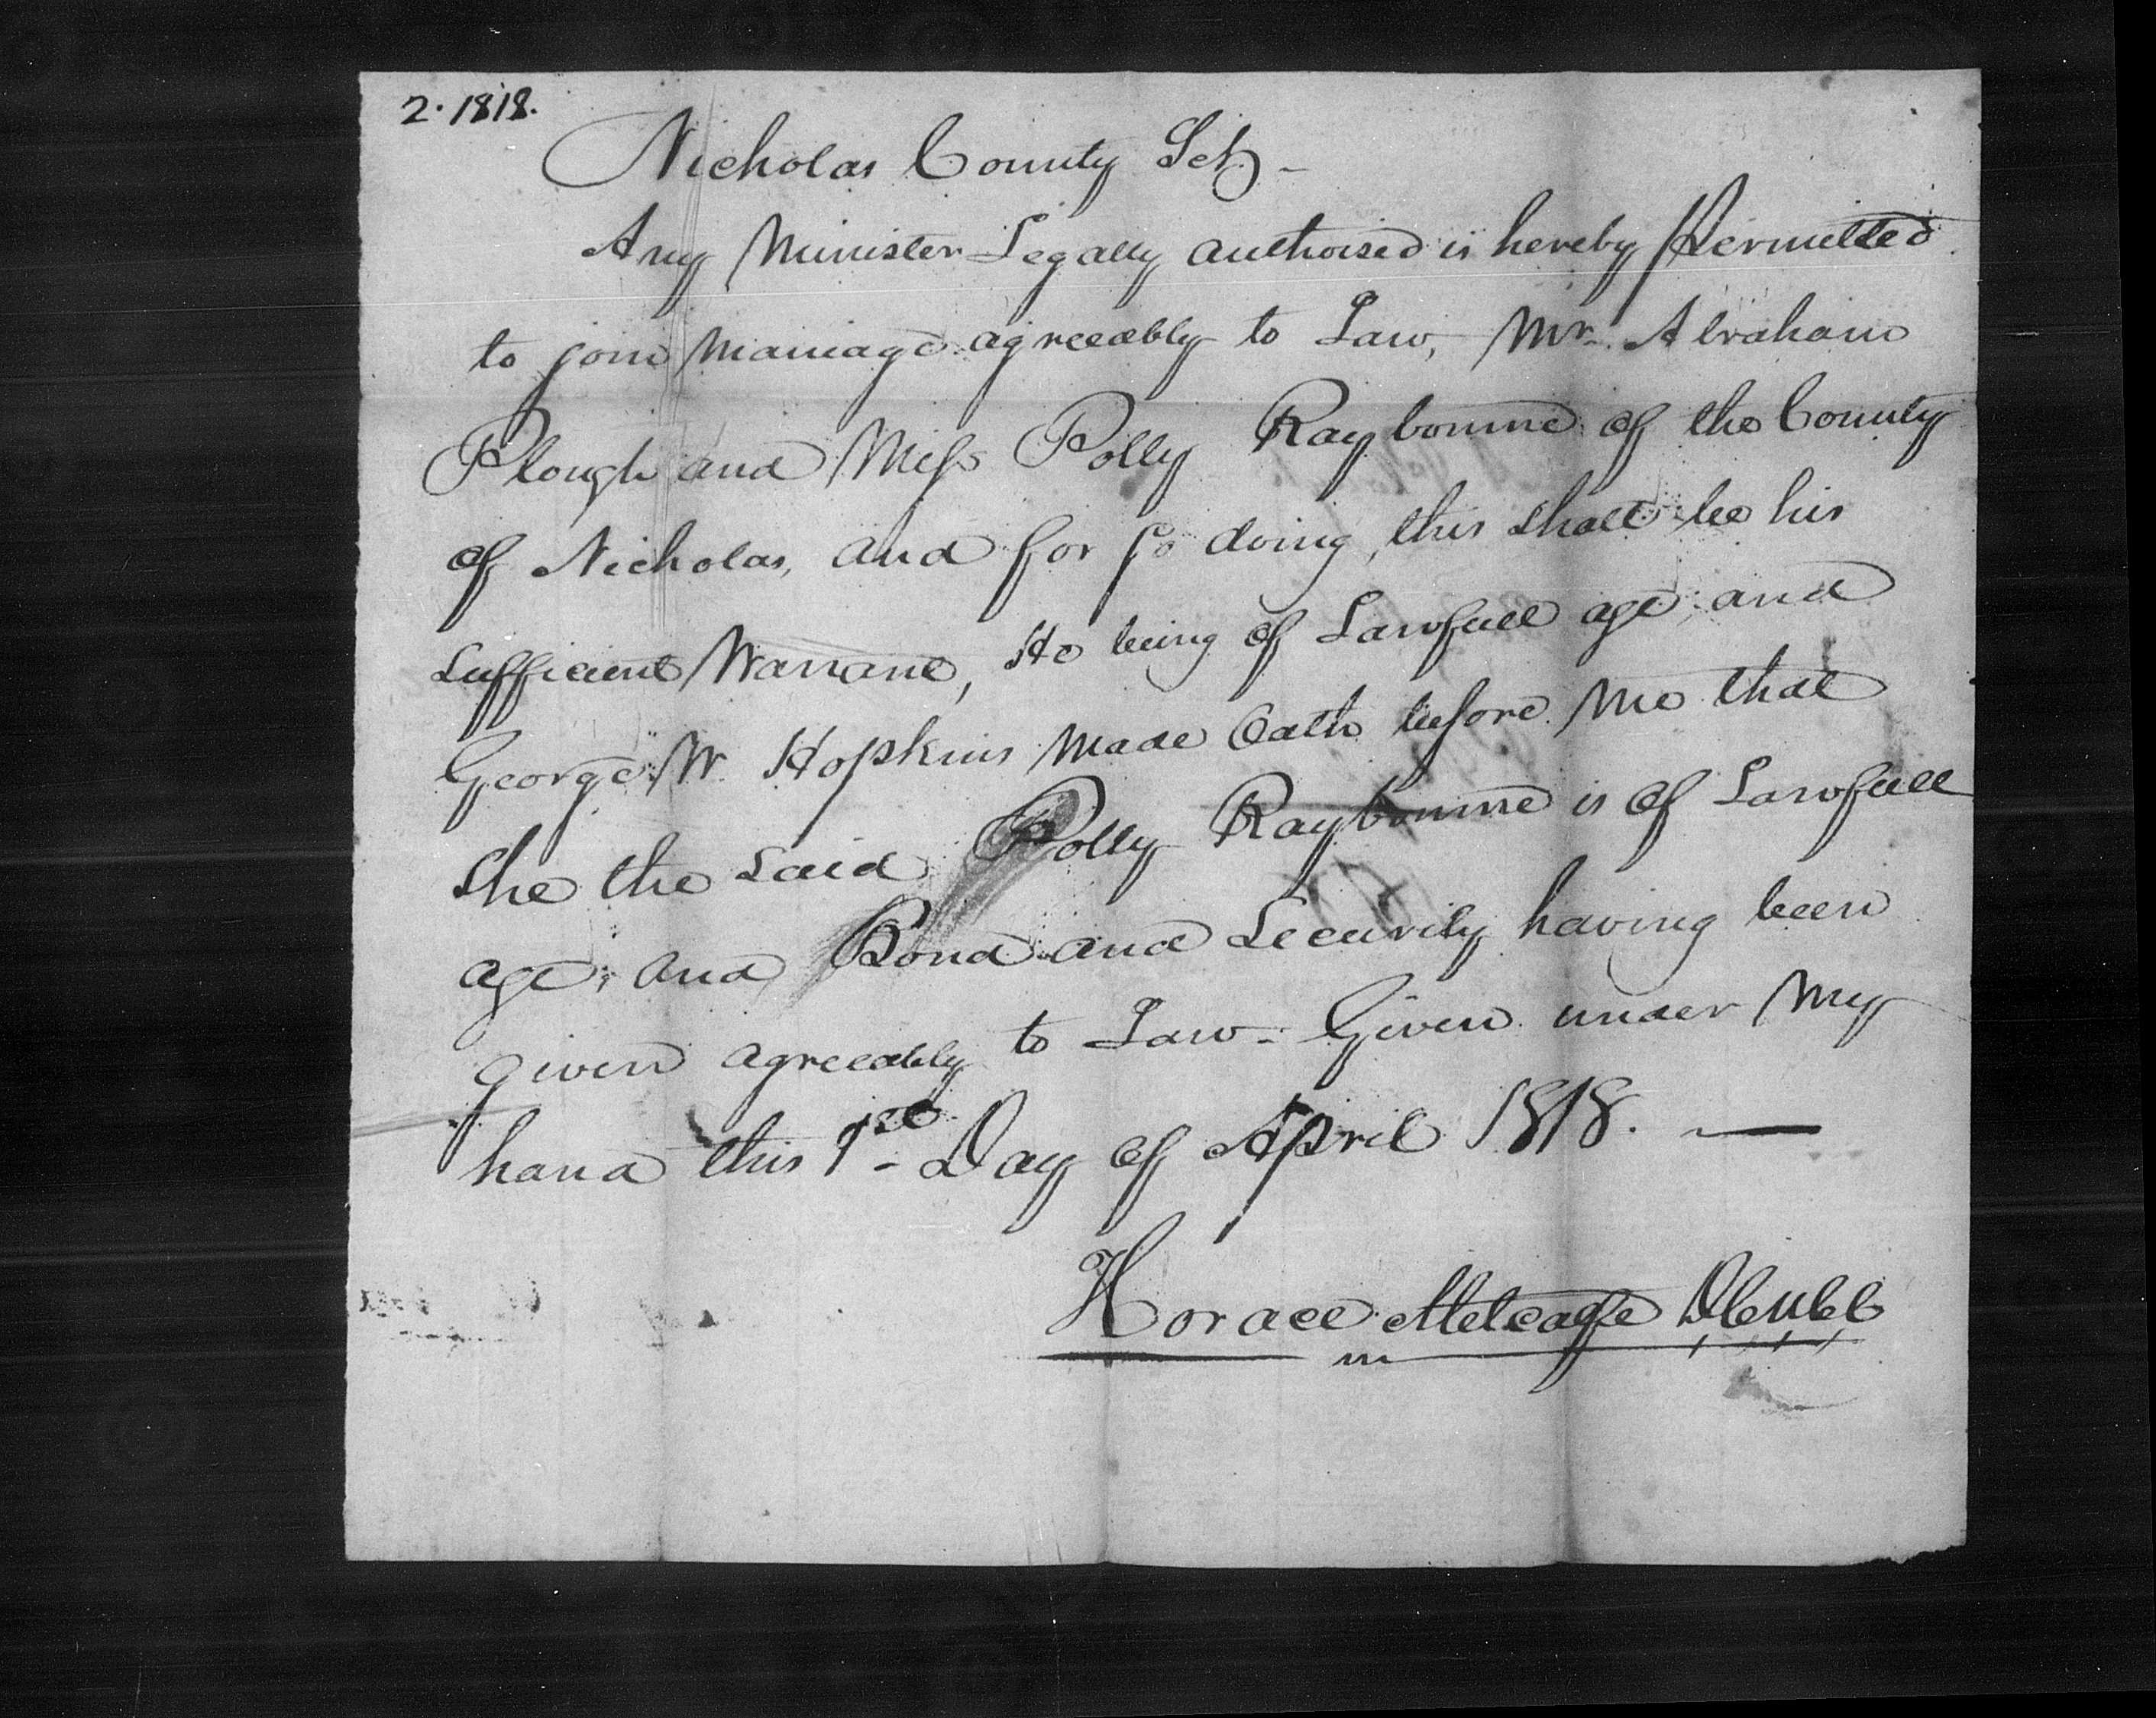 2. 1818.
Nicholas County Sct,
Any Minister Legally authorised is hereby Permitted
to join marriage agreeably to Law, Mr. Abraham
Plough and Miss Polly Raybourne of the County
of Nicholas, and for so doing, this shall be his
sufficient Warrant, He being of Lawfull age and
George W. Hopkins made Oath before me that
She the said Polly Raybourne is of Lawfull
age, and Bond and Security having been
given agreeably to Law - Given under my
hand this 1st Day of April 1818. —
Horace Metcalfe